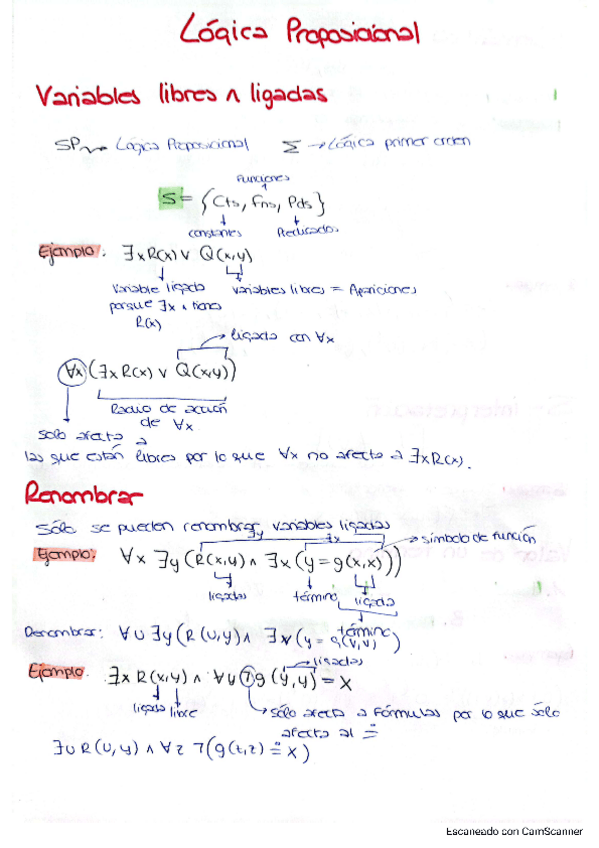 Lógica Proposicional
Variables libres ∧ ligadas
SP → Lógica Proposicional Σ → Lógica primer orden
Funciones
S = {Cts, Fns, Pds}
constantes Predicados
Ejemplo: ∃x R(x) ∨ Q(x,y)
Variable ligada variables libres = Apariciones
porque ∃x ∧ tiene
R(x)
ligada con ∀x
∀x (∃x R(x) ∨ Q(x,y))
Radio de acción
de ∀x
solo afecta a
las que están libres por lo que ∀x no afecta a ∃x R(x).
Renombrar
Sólo se pueden renombrar variables ligadas
∃y ∃x símbolo de función
Ejemplo: ∀x ∃y (R(x,y) ∧ ∃x (y = g(x,x)))
ligadas término ligada
término
Renombrar: ∀u ∃y (R(u,y) ∧ ∃v (y = g(v,v))
ligadas
Ejemplo: ∃x R(x,y) ∧ ∀y ¬ g(y,y) = x
ligada libre
sólo afecta a fórmulas por lo que sólo
afecta al =
∃u R(u,y) ∧ ∀z ¬(g(z,z) = x)
Escaneado con CamScanner